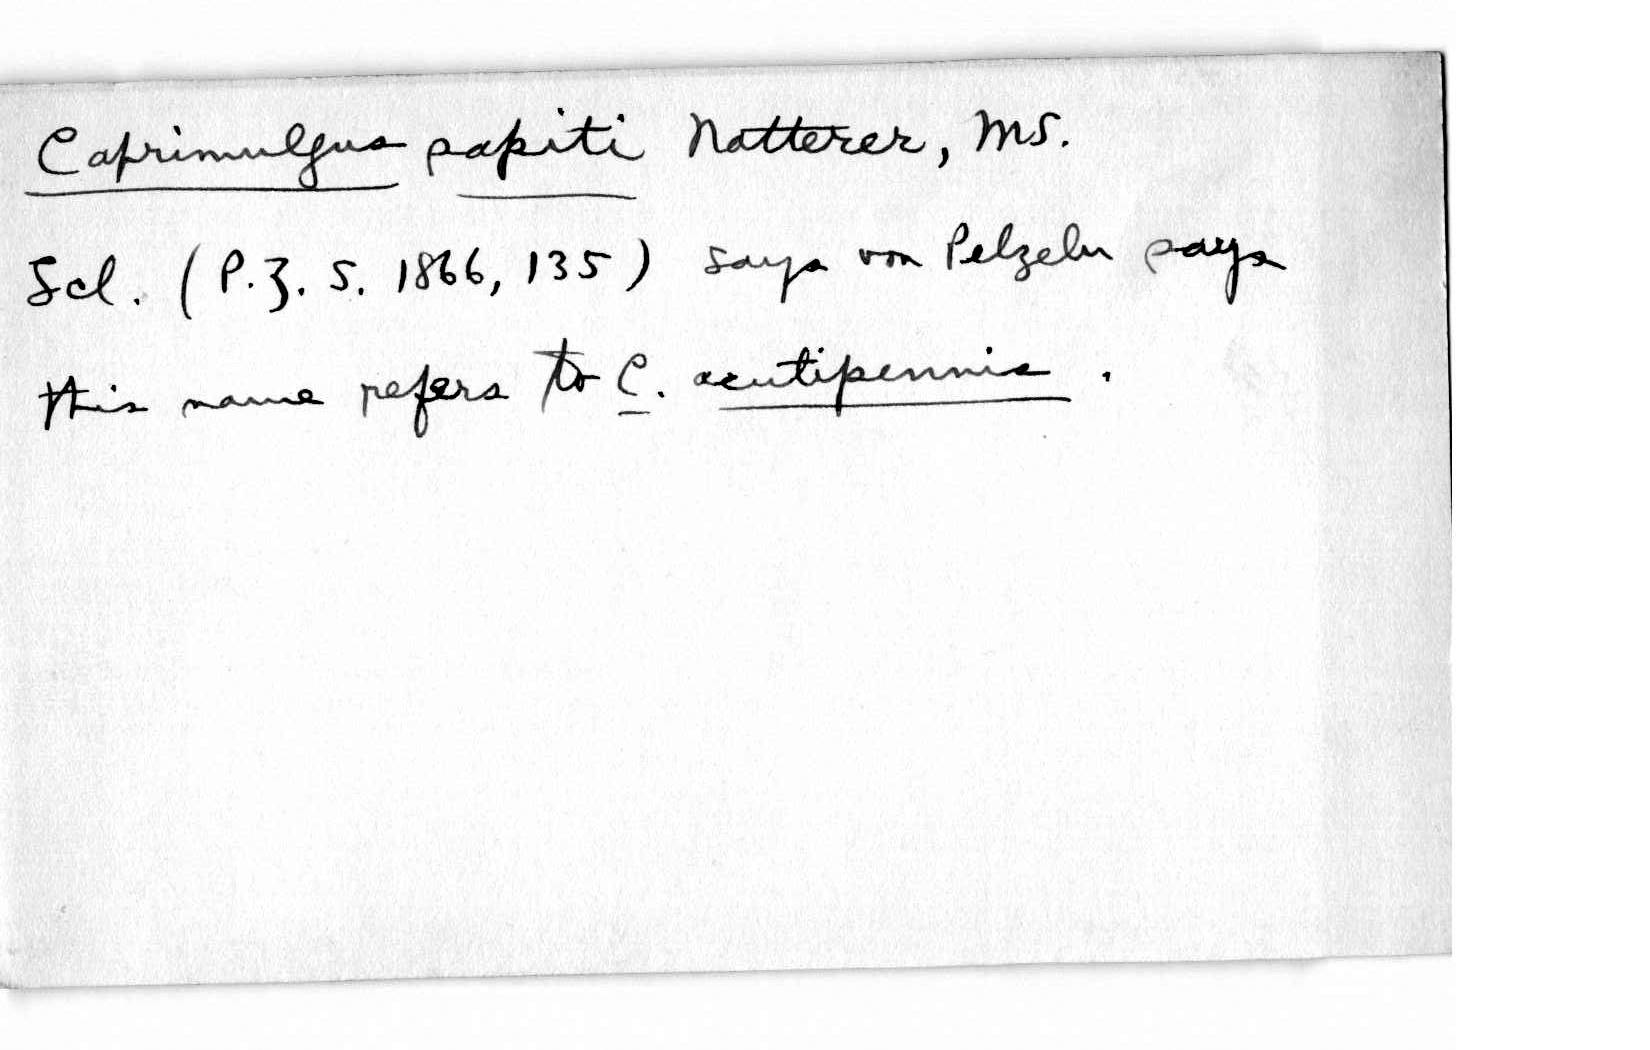 Caprimulgus sapiti Natterer, MS.
Scl. (P.Z.S. 1866, 135) says von Pelzeln says
this name refers to C. acutipennis.